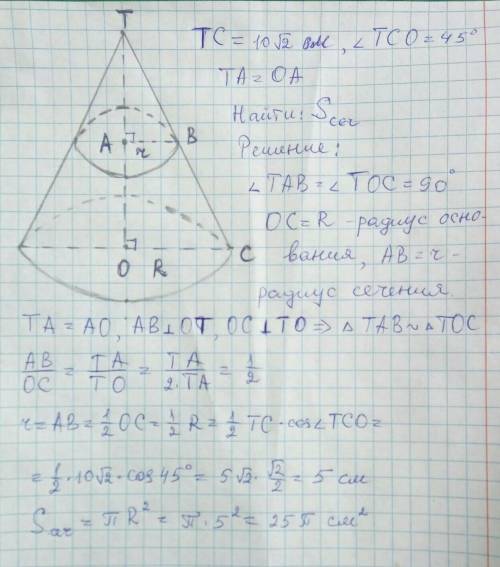 T
TC = 10√2 см, ∠TCO = 45°
TA = OA
Найти: Sсеч
Решение:
A r B
∠TAB = ∠TOC = 90°
OC = R - радиус осно-
вания, AB = r -
радиус сечения.
O R C
TA = AO, AB ⊥ OT, OC ⊥ TO ⇒ △TAB ~ △TOC
AB/OC = TA/TO = TA/2·TA = 1/2
r = AB = 1/2 OC = 1/2 R = 1/2 TC · cos∠TCO =
= 1/2 · 10√2 · cos 45° = 5√2 · √2/2 = 5 см
Sсеч = πR² = π · 5² = 25π см²